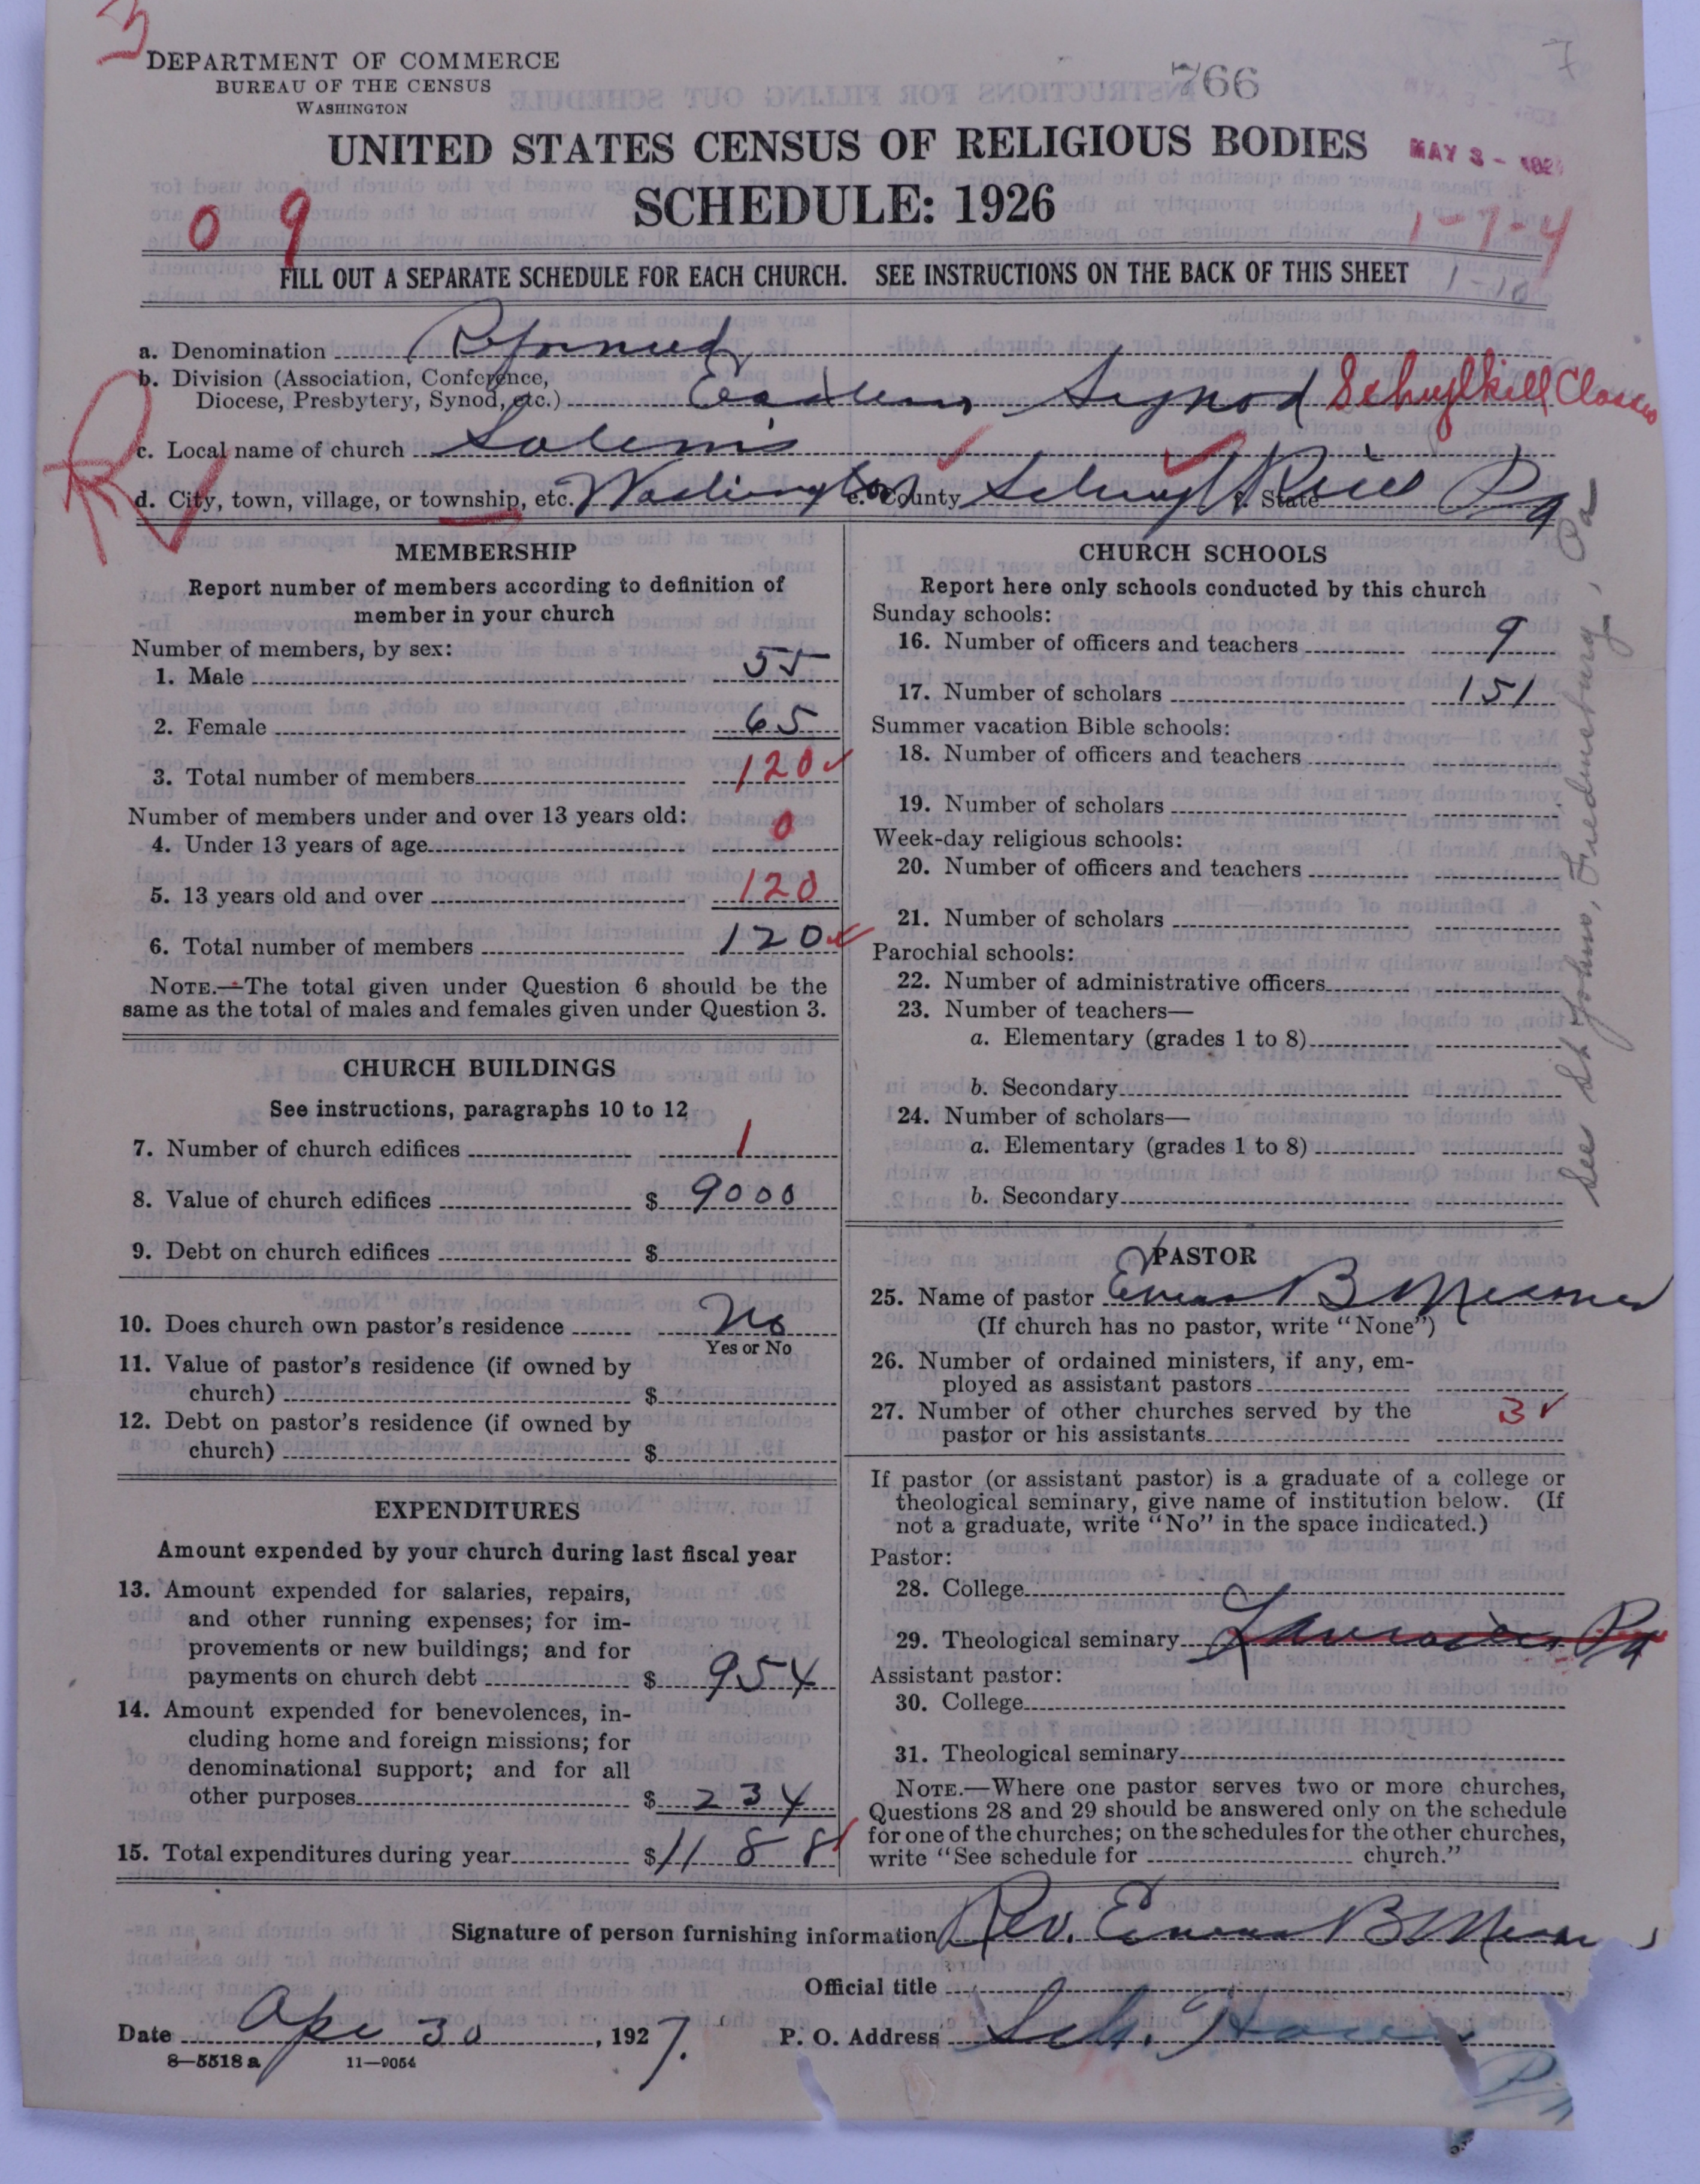 3
DEPARTMENT OF COMMERCE
BUREAU OF THE CENSUS
WASHINGTON
766
7
UNITED STATES CENSUS OF RELIGIOUS BODIES
MAY 3 - 192
SCHEDULE: 1926
0 9
1-7-4
FILL OUT A SEPARATE SCHEDULE FOR EACH CHURCH. SEE INSTRUCTIONS ON THE BACK OF THIS SHEET
1-10
a. Denomination Reformed
b. Division (Association, Conference,
Diocese, Presbytery, Synod, etc.) Eastern Synod Schuylkill Classis
c. Local name of church Salem's
d. City, town, village, or township, etc. Washington e. County Schuylkill f. State Pa
MEMBERSHIP
Report number of members according to definition of
member in your church
Number of members, by sex:
1. Male 55
2. Female 65
3. Total number of members 120
Number of members under and over 13 years old:
4. Under 13 years of age 0
5. 13 years old and over 120
6. Total number of members 120
NOTE.—The total given under Question 6 should be the
same as the total of males and females given under Question 3.
CHURCH BUILDINGS
See instructions, paragraphs 10 to 12
7. Number of church edifices 1
8. Value of church edifices $ 9000
9. Debt on church edifices $
10. Does church own pastor's residence No
Yes or No
11. Value of pastor's residence (if owned by
church) $
12. Debt on pastor's residence (if owned by
church) $
EXPENDITURES
Amount expended by your church during last fiscal year
13. Amount expended for salaries, repairs,
and other running expenses; for im-
provements or new buildings; and for
payments on church debt $ 954
14. Amount expended for benevolences, in-
cluding home and foreign missions; for
denominational support; and for all
other purposes $ 234
15. Total expenditures during year $ 1188
CHURCH SCHOOLS
Report here only schools conducted by this church
Sunday schools:
16. Number of officers and teachers 9
17. Number of scholars 151
Summer vacation Bible schools:
18. Number of officers and teachers
19. Number of scholars
Week-day religious schools:
20. Number of officers and teachers
21. Number of scholars
Parochial schools:
22. Number of administrative officers
23. Number of teachers—
a. Elementary (grades 1 to 8)
b. Secondary
24. Number of scholars—
a. Elementary (grades 1 to 8)
b. Secondary
See St Johns, Friedensburg, Pa
PASTOR
25. Name of pastor B
(If church has no pastor, write "None")
26. Number of ordained ministers, if any, em-
ployed as assistant pastors
27. Number of other churches served by the
pastor or his assistants 3
If pastor (or assistant pastor) is a graduate of a college or
theological seminary, give name of institution below. (If
not a graduate, write "No" in the space indicated.)
Pastor:
28. College
29. Theological seminary Lancaster Pa
Assistant pastor:
30. College
31. Theological seminary
NOTE.—Where one pastor serves two or more churches,
Questions 28 and 29 should be answered only on the schedule
for one of the churches; on the schedules for the other churches,
write "See schedule for church."
Signature of person furnishing information Rev. B
Official title
Date Apr 30, 1927.
P. O. Address Sch. Haven
Pa
8—5518 a 11—9054